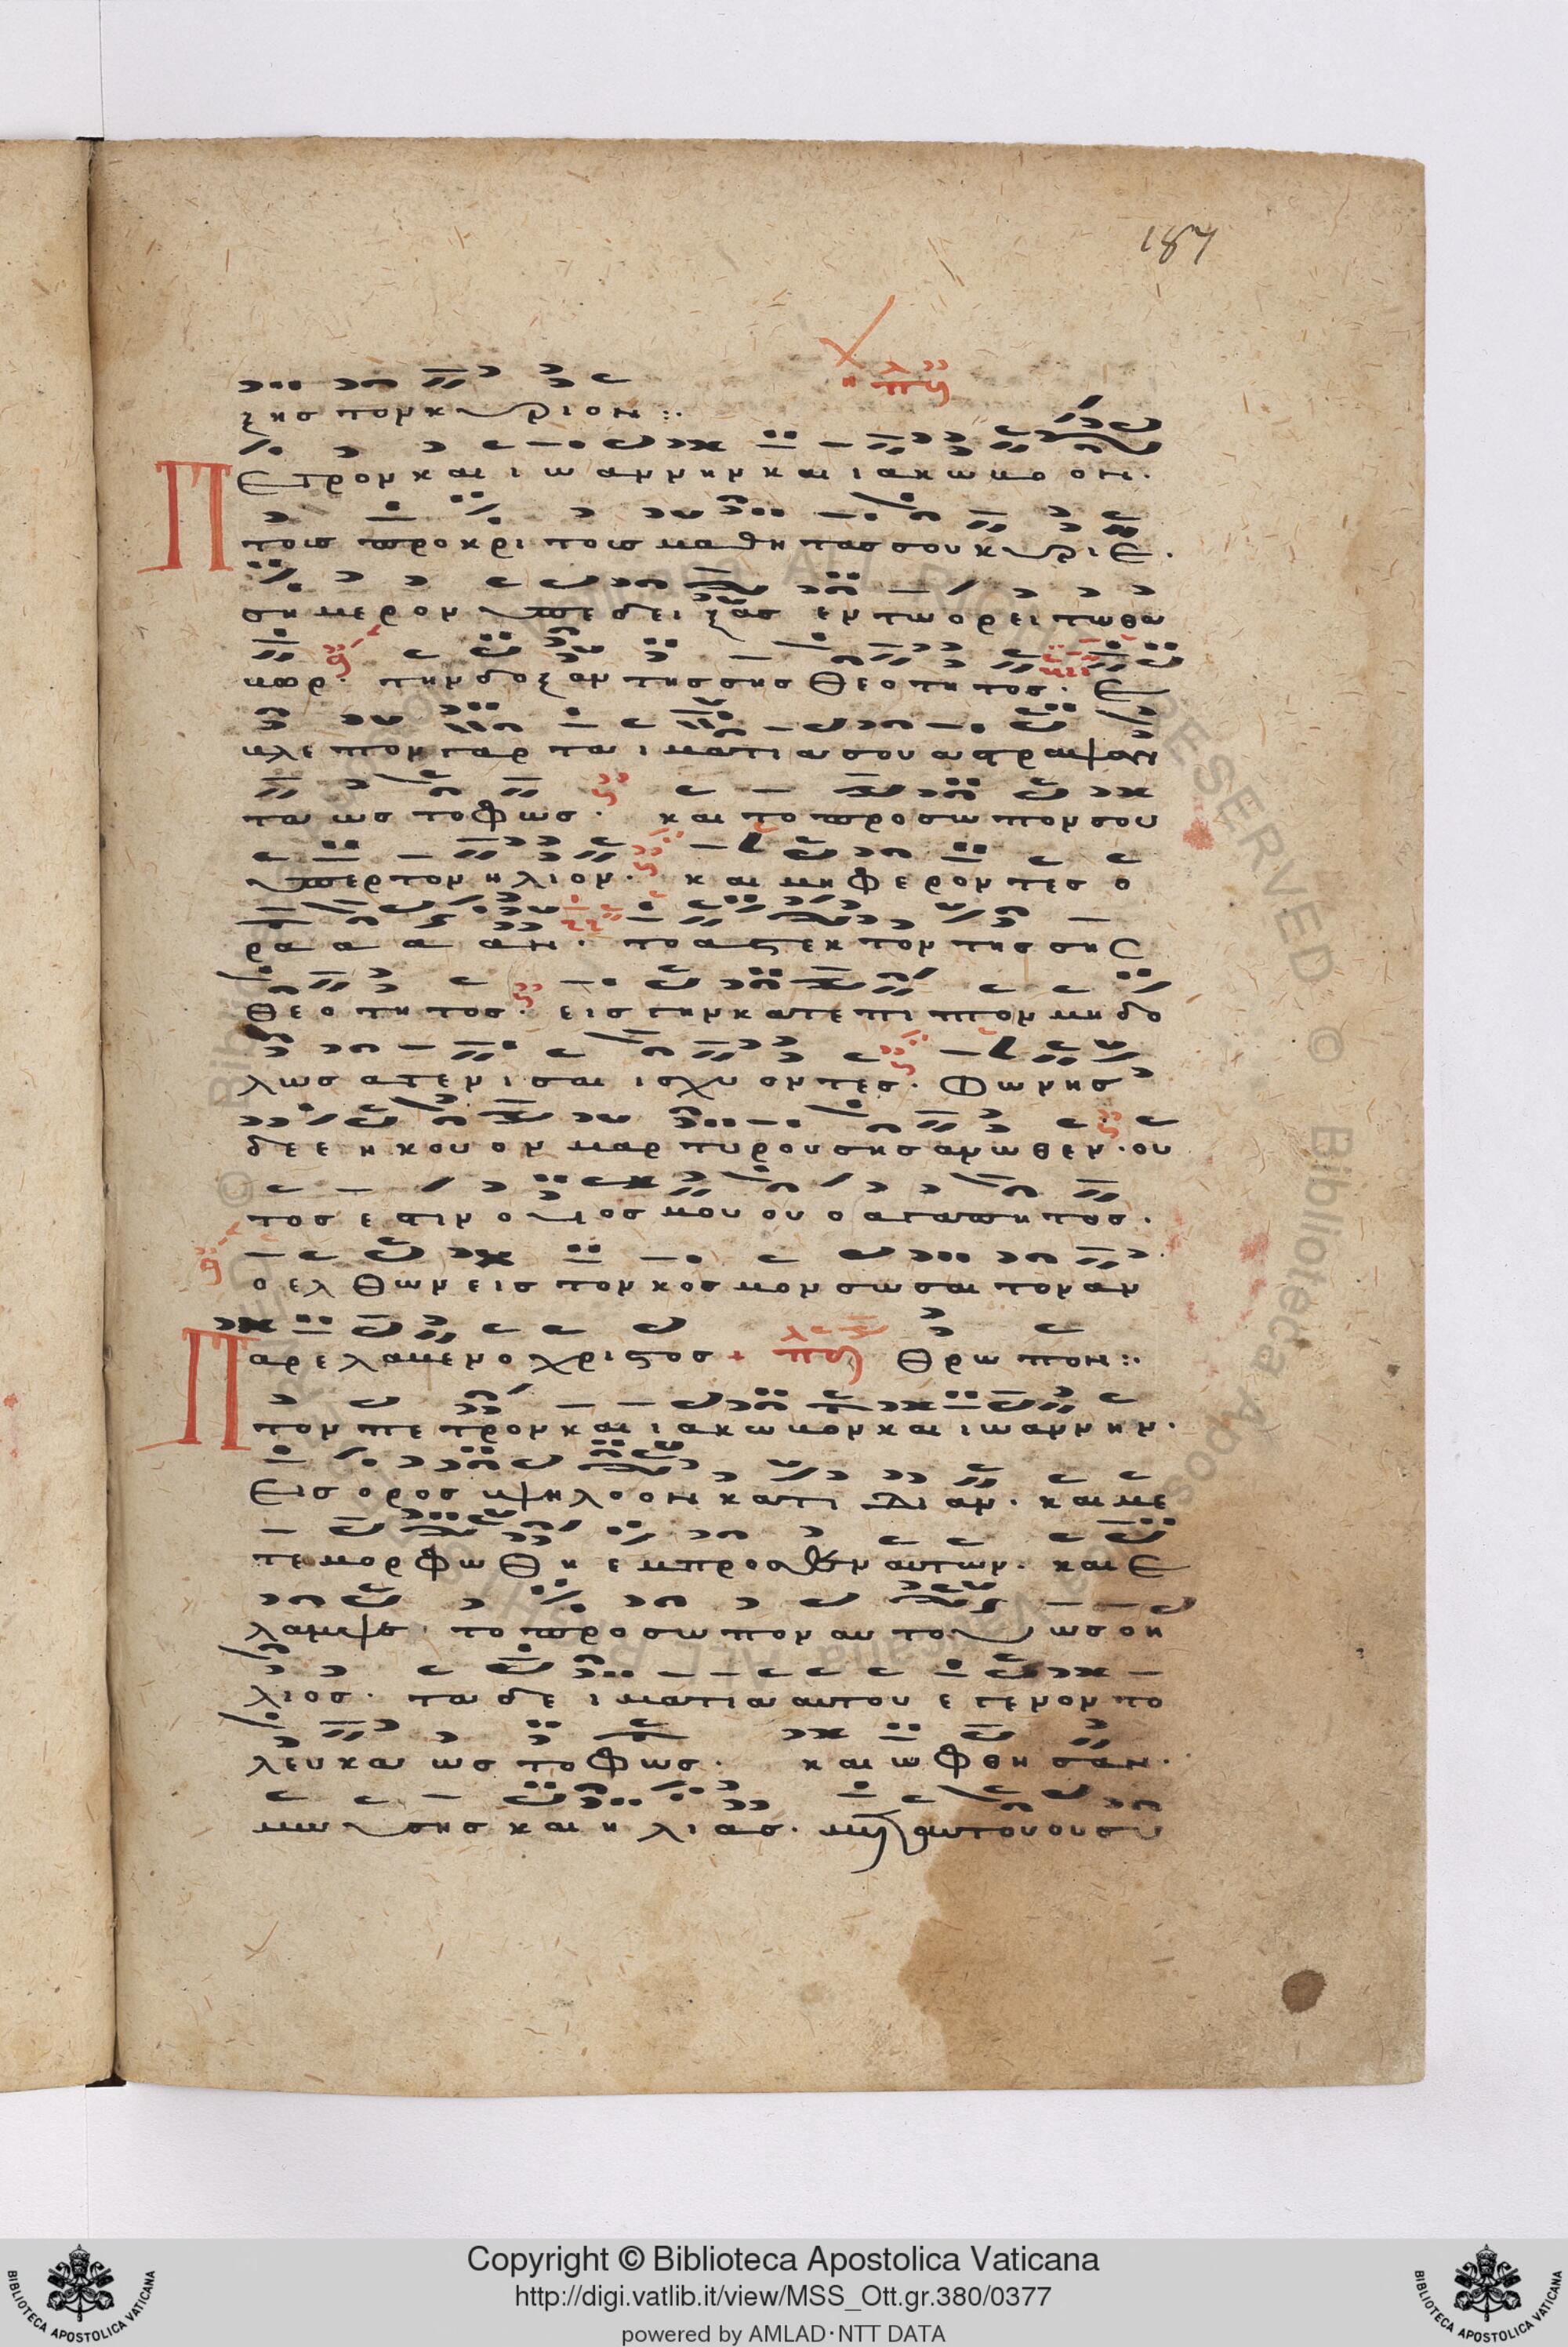 187
ξης τον κυριον :.
Πετρον και ιωαννην και ιακωβοον.
τους προκριτους μαθητας σου κυριε.
σημερον υπεδειξας εν τω ορει τω θα
βωρ. την δοξαν της σης θεοτητος. ε
βλεπον γαρ τα ιματια σου αστραψαν
τα ως το φως. και το προσωπον σου
υπερ τον ηλιον. και μη φεροντες ο
ρα α α αν. το αστεκτον της σης
θεοτητος. εις γην κατεπιπτον μηδο
λως ατενισαι ισχυοντες. φωνης
δε ε ηκουον μαρτυρουσης ανωθεν. ου
τος εστιν ο υιος μου ου ο αγαπητος.
ο ελθων εις τον κοσμον σωσαι τον αν
Παρελαβεν ο χριστος + θρωπον :.
τον πετρον και ιακωβον και ιωαννην.
εις ορος υψηλοον κατ ιδιαν. και με
τεμορφωθη εμπροσθεν αυτων. και ε
λαμψε. το προσωπον αυτου ως ο η
λιος. τα δε ιματια αυτου εγενοντο
λευκα ως το φως. και ωφθησαν.
μωυσης και ηλιας. μετ αυτου ου συ
Copyright © Biblioteca Apostolica Vaticana
http://digi.vatlib.it/view/MSS_Ott.gr.380/0377
powered by AMLAD·NTT DATA
BIBLIOTECA APOSTOLICA VATICANA
BIBLIOTECA APOSTOLICA VATICANA